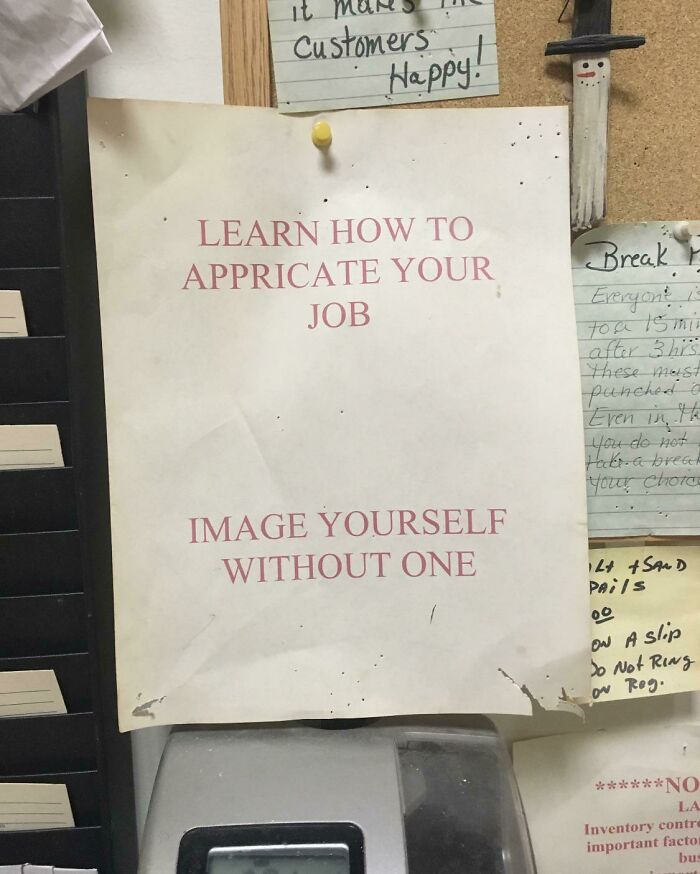 it makes the
Customers
Happy!
LEARN HOW TO
APPRICATE YOUR
JOB
IMAGE YOURSELF
WITHOUT ONE
Break
Everyone is
to a 15 min
after 3 hrs
These must
punched
Even in th
You do not
take a break
your choice
+ SAND
PAils
ON A Slip
Do Not Ring
on Reg.
******NO
LA
Inventory contr
important facto
bus